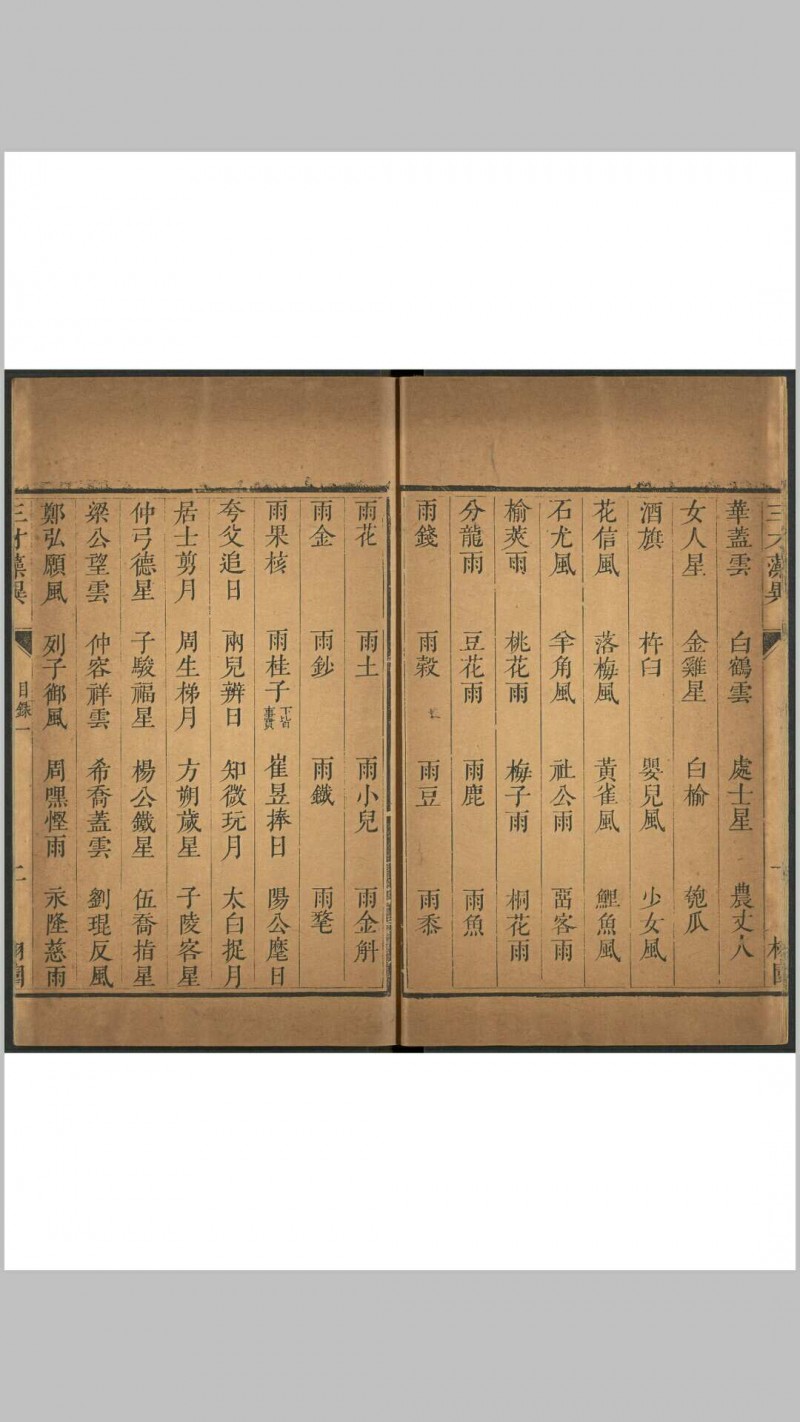 三才藻異
華蓋雲 白鶴雲 處士星 農丈人
女人星 金雞星 白榆 匏瓜
酒旗 杵臼 嬰兒風 少女風
花信風 落梅風 黃雀風 鯉魚風
石尤風 羊角風 社公雨 畱客雨
榆莢雨 桃花雨 梅子雨 桐花雨
分龍雨 豆花雨 雨鹿 雨魚
雨錢 雨穀 雨豆 雨黍
雨花 雨土 雨小兒 雨金斛
雨金 雨鈔 雨鐵 雨氂
雨果核 雨桂子 下皆事實 崔昱捧日 陽公麾日
夸父追日 兩兒辨日 知微玩月 太白捉月
居士剪月 周生梯月 方朔歲星 子陵客星
仲弓德星 子駿福星 楊公鐵星 伍喬指星
梁公望雲 仲容祥雲 希喬蓋雲 劉琨反風
鄭弘願風 列子御風 周嘿慳雨 永隆慈雨
三才藻異 目錄一 二